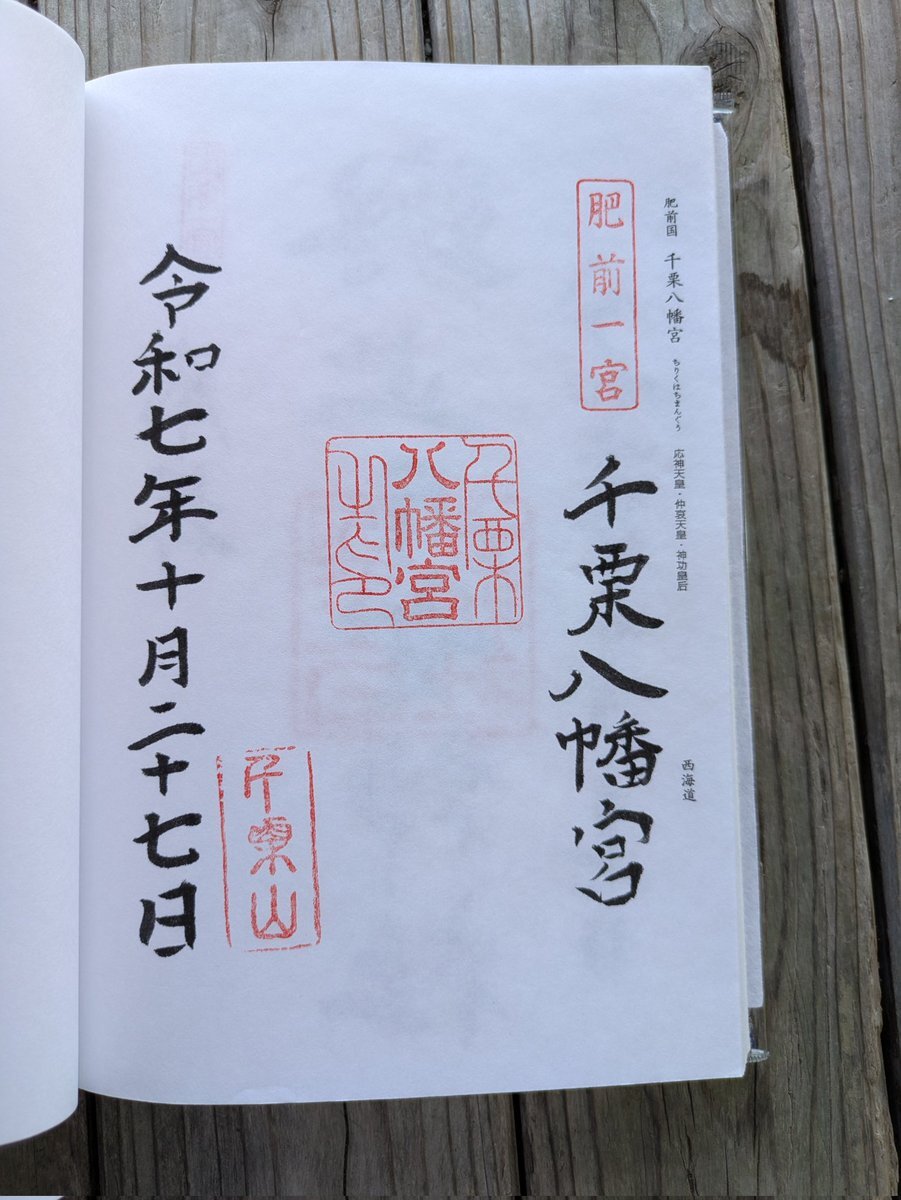 肥前国 千栗八幡宮 ちりくはちまんぐう 応神天皇・仲哀天皇・神功皇后
西海道
肥前一宮
千栗八幡宮
千栗
八幡宮
之印
千栗山
令和七年十月二十七日